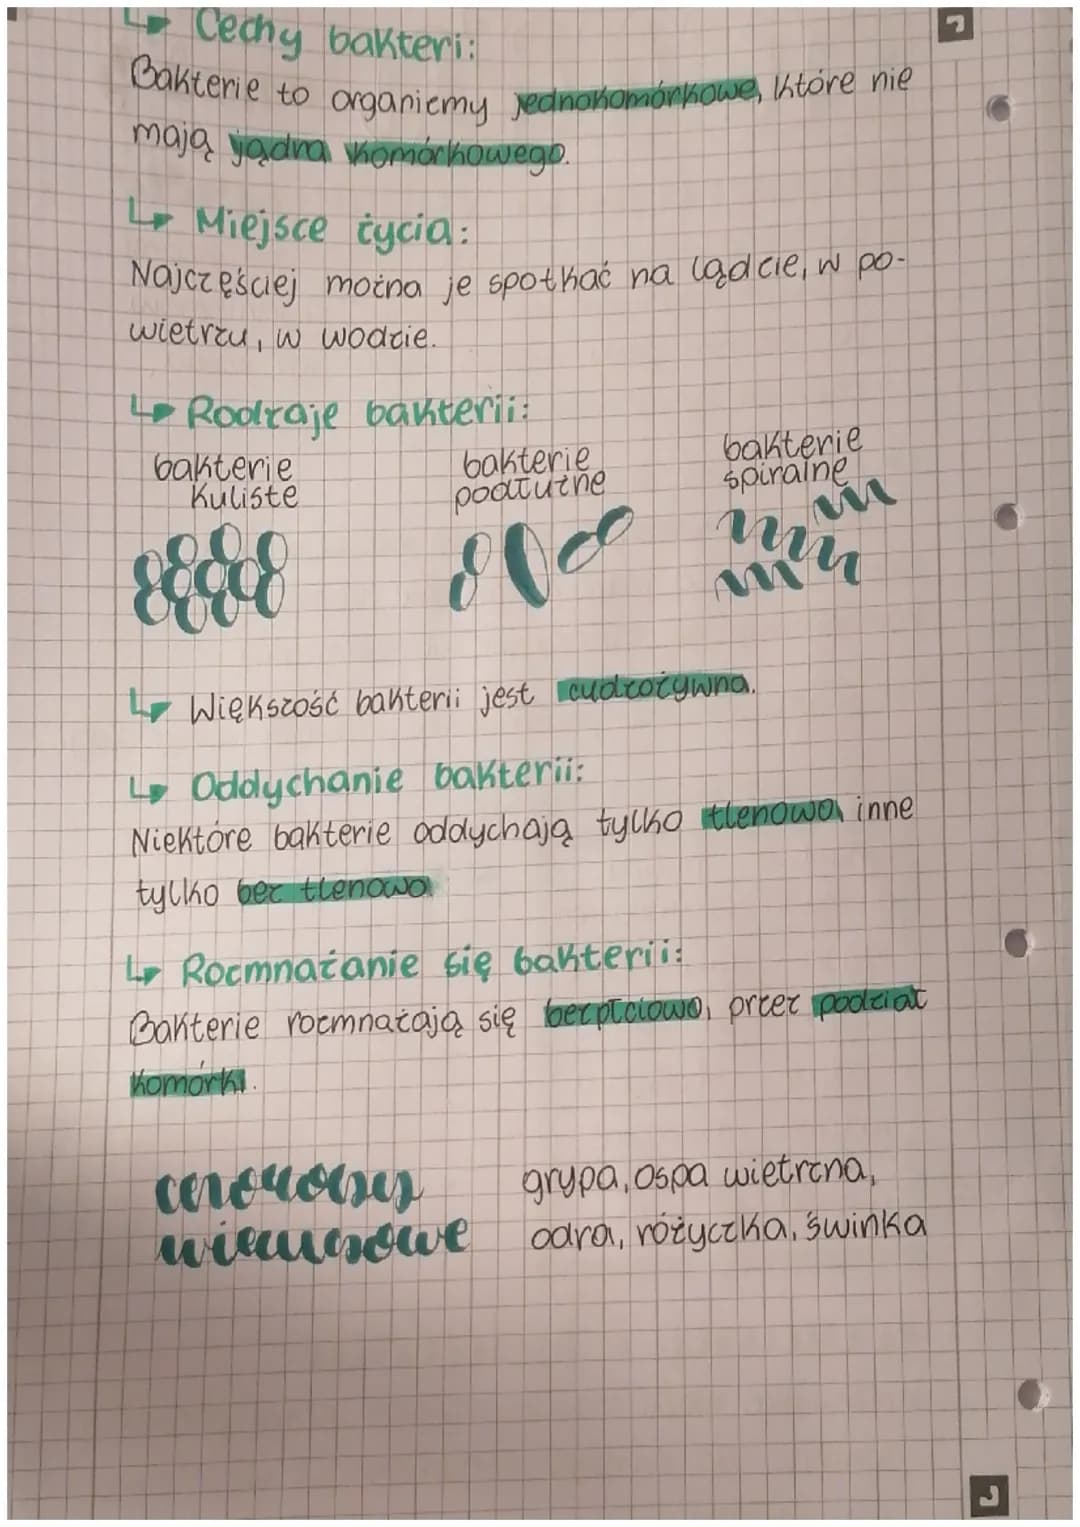 ↳ Cechy bakteri:
Bakterie to organizmy jednokomórkowe, które nie
mają jądra komórkowego.
↳ Miejsce życia:
Najczęściej można je spotkać na lądzie, w po-
wietrzu, w wodzie.
↳ Rodzaje bakterii:
bakterie kuliste
bakterie podłużne
bakterie spiralne
↳ Większość bakterii jest cudzożywna.
↳ Oddychanie bakterii:
Niektóre bakterie oddychają tylko tlenowo, inne
tylko bez tlenowo
↳ Rozmnażanie się bakterii:
Bakterie rozmnażają się bezpłciowo, przez podział
komórki.
choroby
wirusowe
grypa, ospa wietrzna,
odra, różyczka, świnka